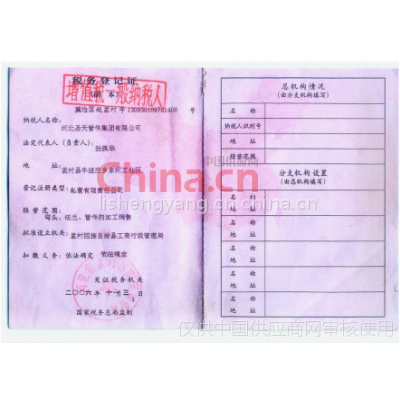 税务登记证
(副本)
增值税一般纳税人
冀沧国税孟村字 130930109781408 号
纳税人名称:
河北圣天管件集团有限公司
法定代表人(负责人):
地 址:
登记注册类型:
私营有限责任公司
经营范围:
弯头、法兰、管件的加工销售
批准设立机关:
孟村回族自治县工商行政管理局
扣缴义务: 依法确定 依法确定
发证税务机关
二〇〇六年 十一月 三 日
国家税务总局监制
总机构情况
(由分支机构填写)
名 称
纳税人识别号
地 址
经营范围
分支机构设置
(由总机构填写)
名 称
地 址
名 称
地 址
名 称
地 址
名 称
地 址
名 称
地 址
中国供应商
China.cn
lishengyang.cn.china.cn
仅供中国供应商网审核使用